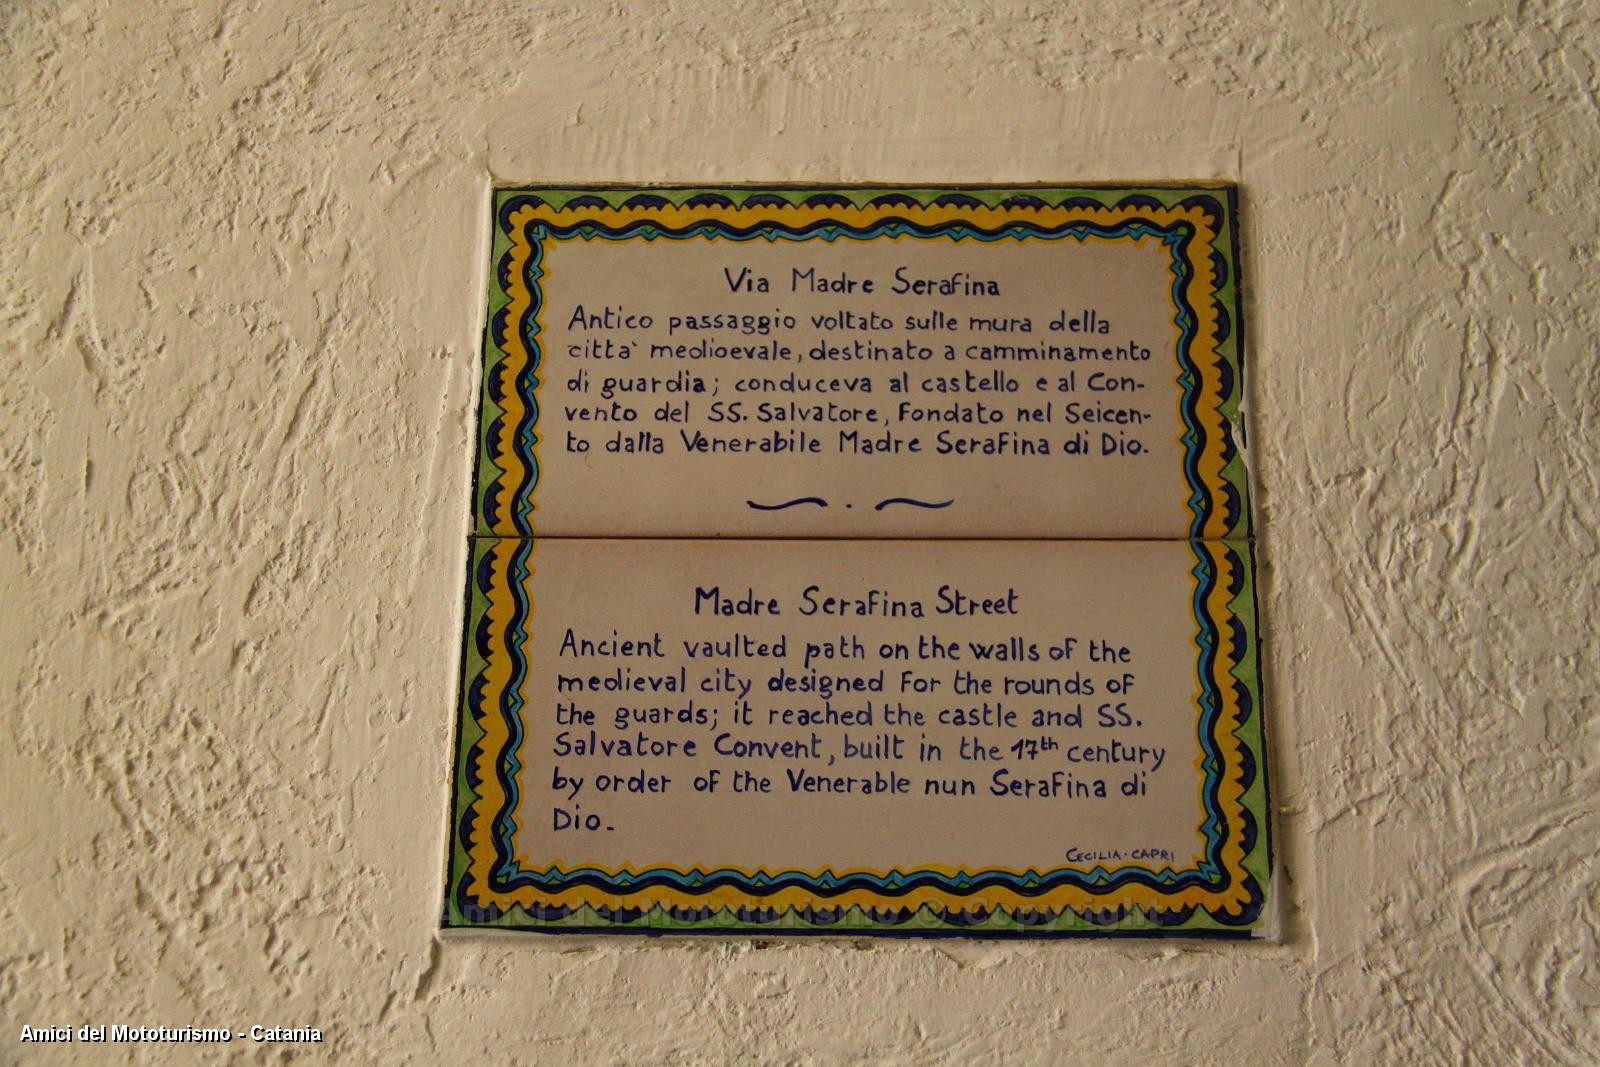 Via Madre Serafina
Antico passaggio voltato sulle mura della
citta` medioevale, destinato a camminamento
di guardia; conduceva al castello e al Con-
vento del SS. Salvatore, Fondato nel Seicen-
to dalla Venerabile Madre Serafina di Dio.
Madre Serafina Street
Ancient vaulted path on the walls of the
medieval city designed for the rounds of
the guards; it reached the castle and SS.
Salvatore Convent, built in the 17th century
by order of the Venerable nun Serafina di
Dio.
CECILIA·CAPRI
Amici del Mototurismo © Copyright
Amici del Mototurismo - Catania